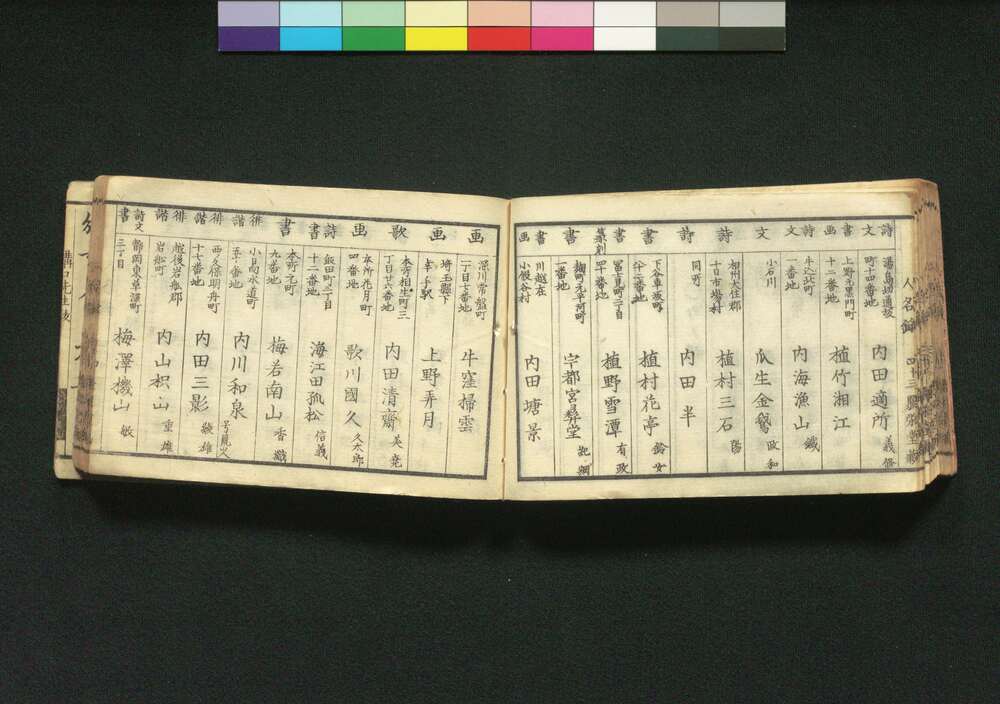 人名録
四十三
詩文
湯島切通坂町十四番地
内田適所
義脩
画書
上野元黒門町十二番地
植竹湘江
詩文
一番地
内海漁山
鐡
文
小石川
瓜生金鵞
政和
詩
相州大住郡十日市場村
植村三石
陽
詩
同所
内田半
書
下谷車坂町
植村花亭
鈴女
書
篆刻
冨士見町二丁目四十番地
植野雪潭
有政
書
麹町元平河町一番地
宇都宮彛堂
書画
川越在小仙波村
内田塘景
画
深川常盤町二丁目七番地
牛窪掃雲
画
埼玉縣下幸手駅
上野弄月
歌
本所相生町三丁目廿六番地
内田清齋
美尭
画
本所花月町四番地
歌川國久
久太郎
詩書
飯田町二丁目十二番地
海江田孤松
信義
書
本町元町九番地
梅若南山
香巌
俳諧
小日向水道町五十一番地
内川和泉
俳諧
西久保明舟町十七番地
内田三影
綾雄
俳諧
越後岩船郡岩船町
内山枳山
重雄
詩文
書
静岡東草深町三丁目
梅澤機山
敏